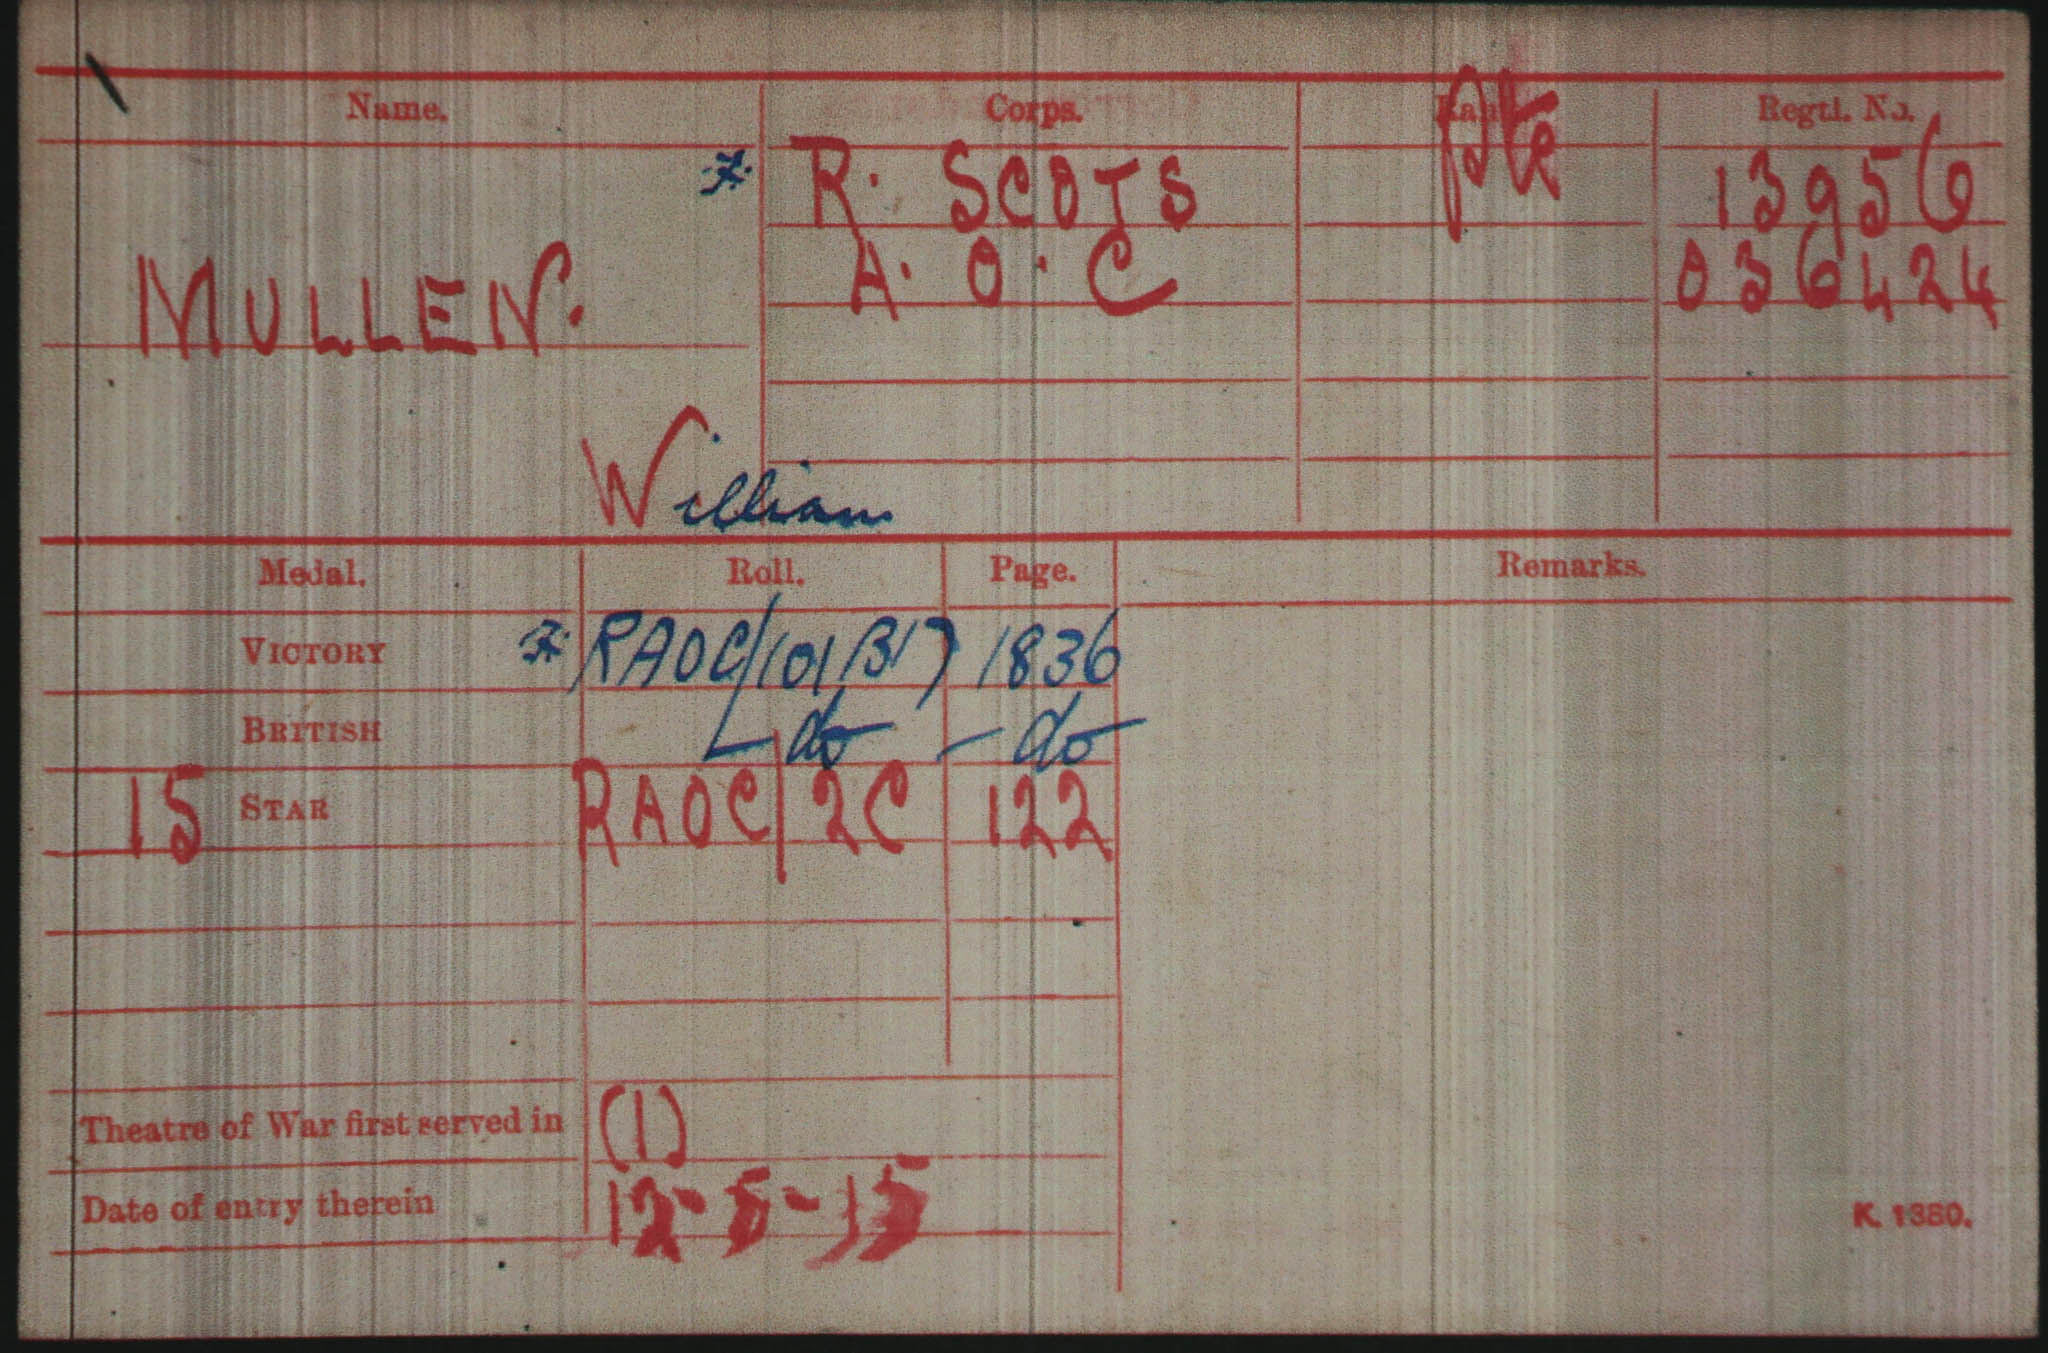 Name. Corps. Rank Regtl. No.
* R. SCOTS Pte 13956
MULLEN. A. O. C 036424
William
Medal. Roll. Page. Remarks.
VICTORY * RAOC/101B17 1836
BRITISH - do - do
15 STAR RAOC/2C 122
Theatre of War first served in (1)
Date of entry therein 12-5-15
K. 1380.